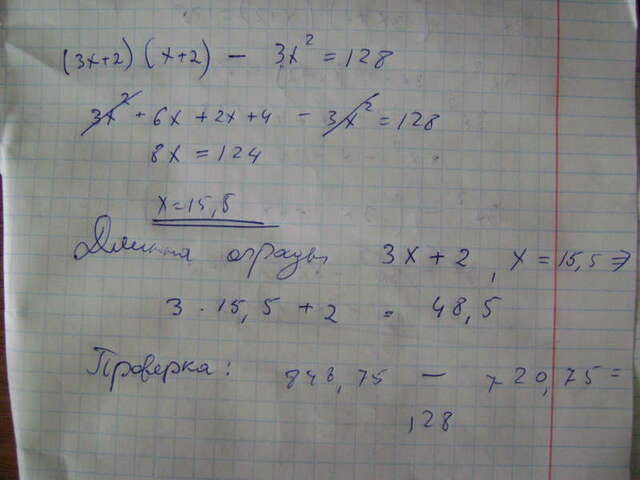 (3x+2)(x+2) - 3x² = 128
3x² + 6x + 2x + 4 - 3x² = 128
8x = 124
x = 15,5
Длинна ограды 3x + 2, x = 15,5 ⇒
3 · 15,5 + 2 = 48,5
Проверка: 848,75 - 720,75 =
128